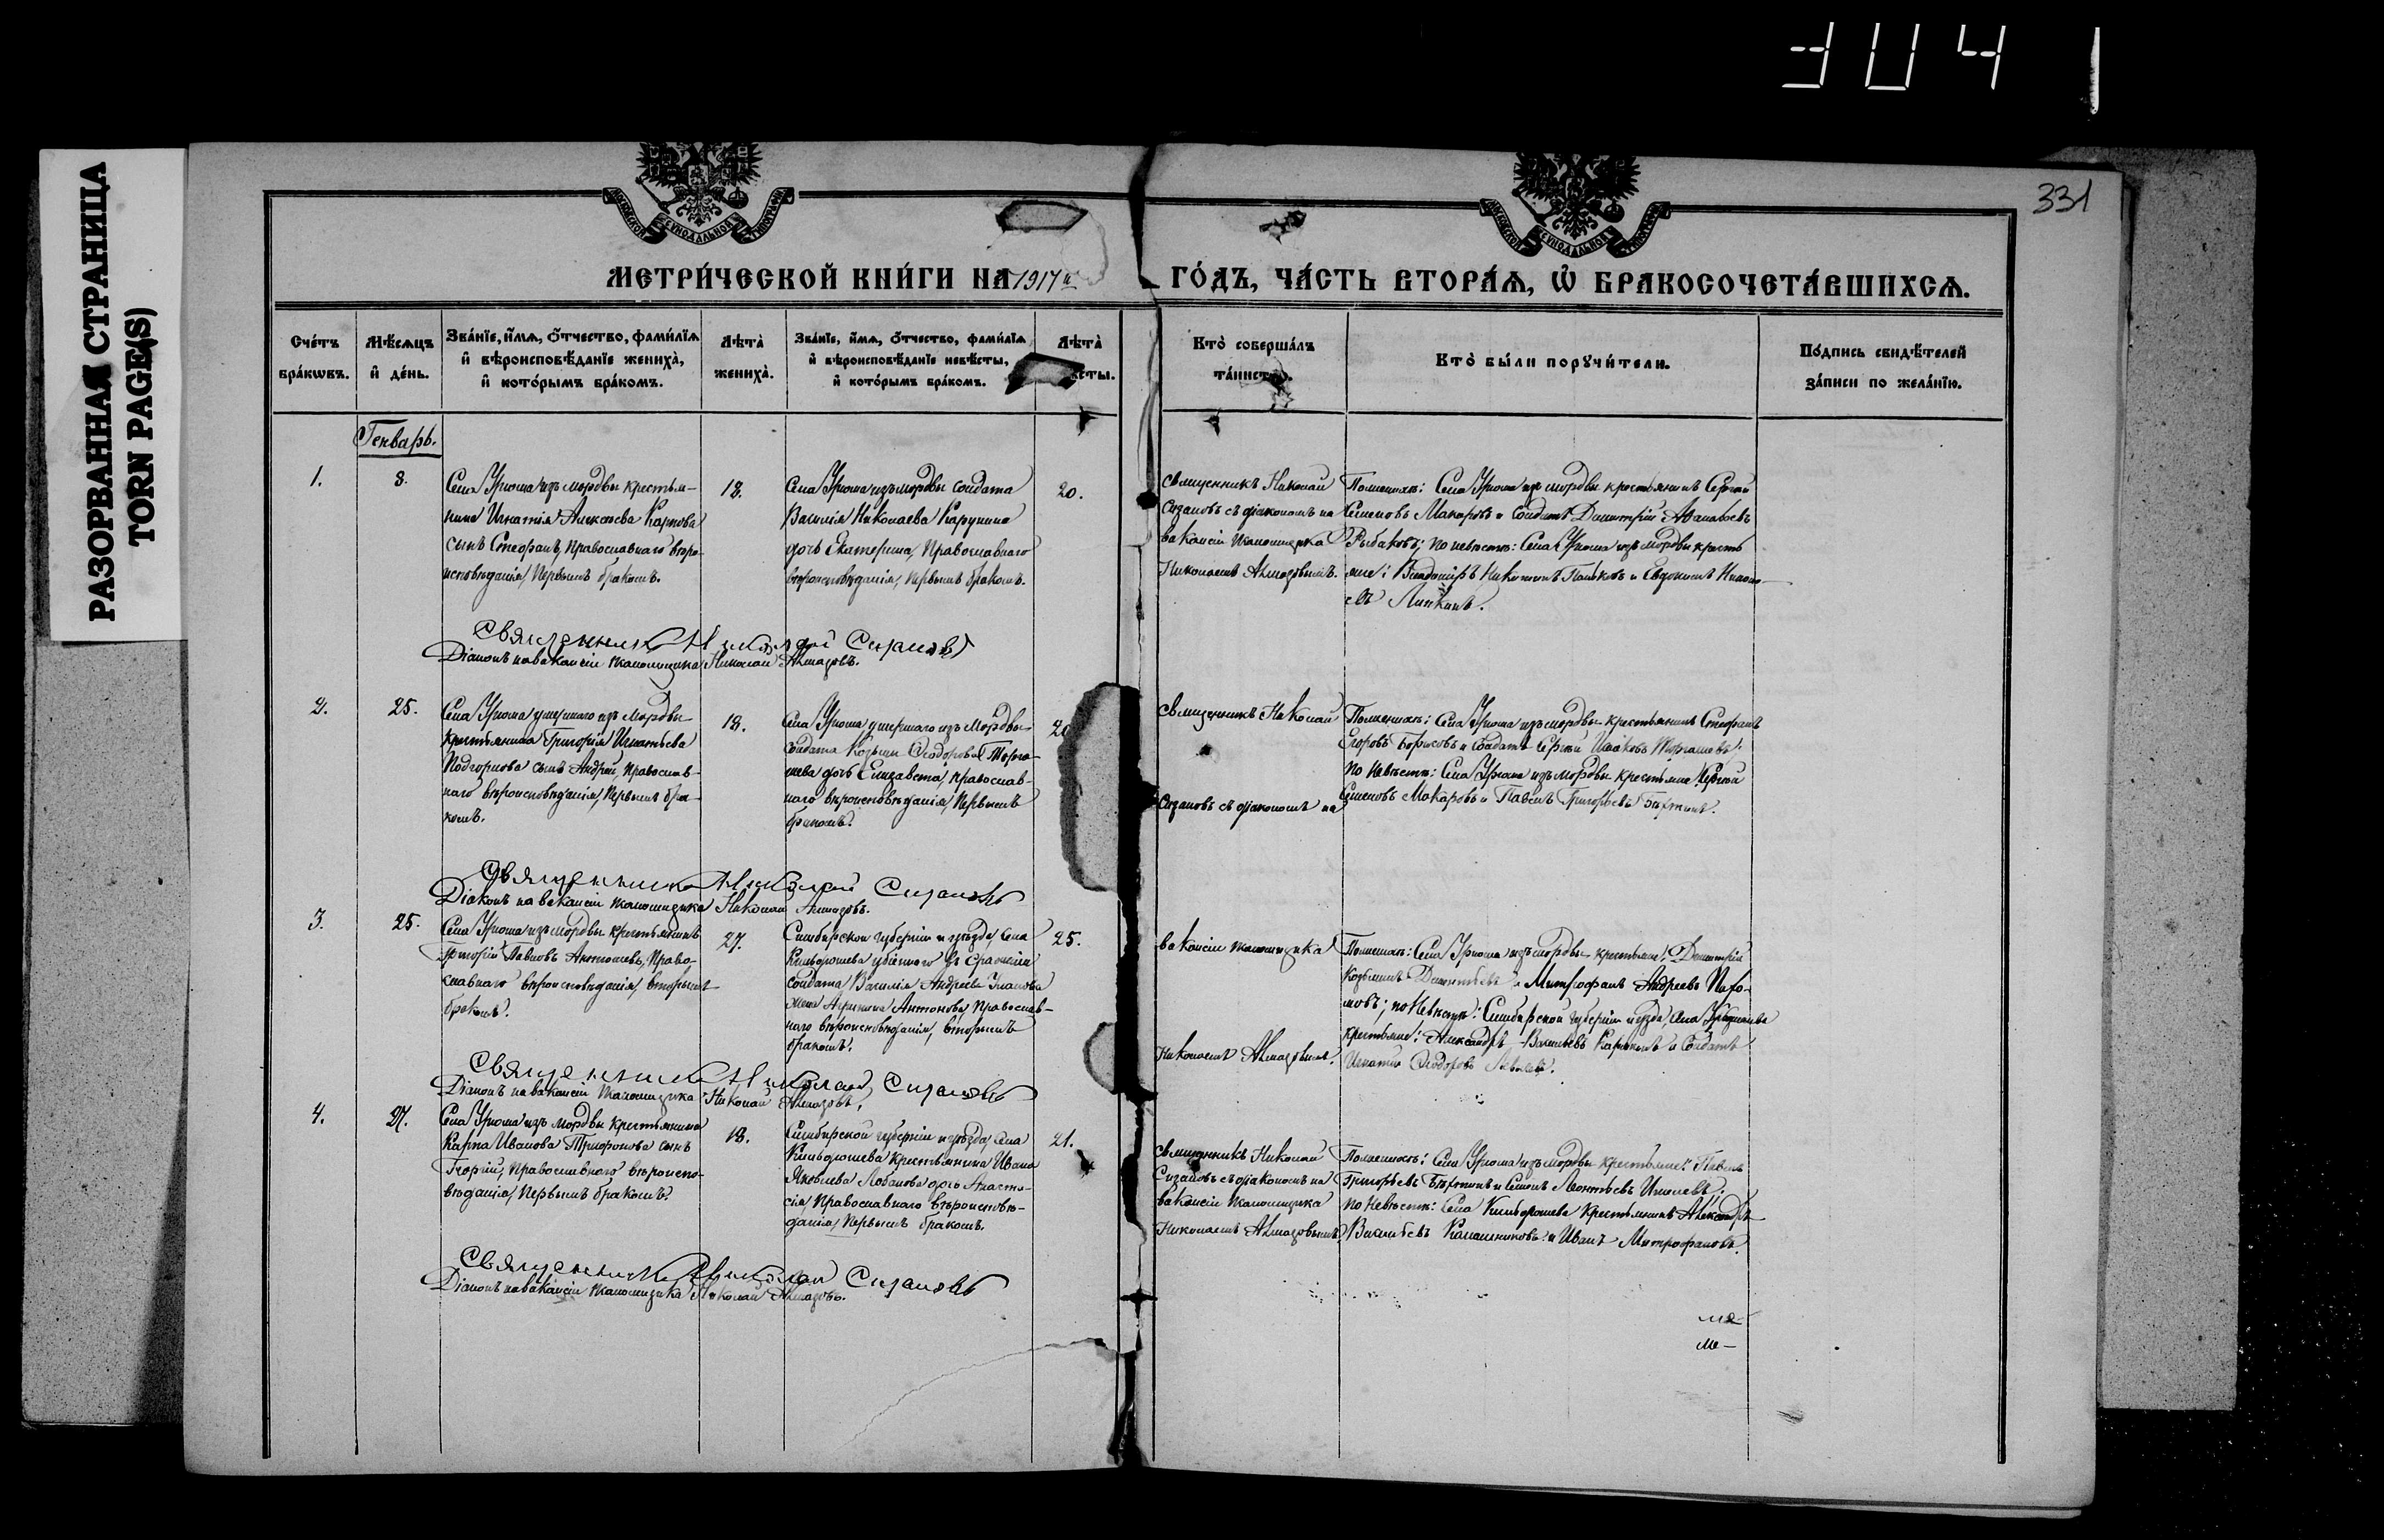 304 1
РАЗОРВАННАЯ СТРАНИЦА
TORN PAGE(S)
331
МОСКОВСКОЙ СѴНОДАЛЬНОЙ ТИПОГРАФІИ
МОСКОВСКОЙ СѴНОДАЛЬНОЙ ТИПОГРАФІИ
МЕТРИ́ЧЕСКОЙ КНИ́ГИ НА 1917й ГО́ДЪ, ЧА́СТЬ ВТОРА́Ѧ, Ѽ БРАКОСОЧЕТА́ВШИХСѦ.
Сче́тъ
бра́кѡвъ.
Мѣ́сѧцъ
и҆ де́нь.
Зва́нїе, и҆́мѧ, ѻ҆́тчество, фами́лїѧ
и҆ вѣроисповѣ́данїе жениха̀,
и҆ кото́рымъ бра́комъ.
Лѣта̀
жениха̀.
Зва́нїе, и҆́мѧ, ѻ҆́тчество, фами́лїѧ
и҆ вѣроисповѣ́данїе невѣ́сты,
и҆ кото́рымъ бра́комъ.
Лѣта̀
Кто̀ соверша́лъ
Кто̀ бы́ли порꙋчи́тели.
По́дпись свидѣ́телей
за́писи по жела́нїю.
Генварь.
1.
8.
Села Урюма изъ мордвы крестья-
нина Игнатія Алексѣева Карпова
сынъ Стефанъ, Православнаго вѣро-
исповѣданія, Первымъ бракомъ.
18.
Села Урюма изъ мордвы солдата
Василія Николаева Карунина
дочь Екатерина, Православнаго
вѣроисповѣданія, Первымъ бракомъ.
20.
Священникъ Николай
Сизановъ съ діакономъ на
вакансіи псаломщика
Николаемъ Алмазовымъ.
По женихѣ: Села Урюма изъ мордвы крестьянинъ Сергѣй
Семеновъ Макаровъ и Солдатъ Димитрій Аѳанасьевъ
Рыбаковъ; по невѣстѣ: Села Урюма изъ мордвы кресть
яне: Владиміръ Никитинъ и Евдокимъ
Священникъ Николай Сизановъ
Діаконъ на вакансіи псаломщика Николай Алмазовъ.
2.
25.
Села Урюма умершаго изъ мордвы
крестьянина Григорія Игнатьева
Подгорнова сынъ Андрей, Православ-
наго вѣроисповѣданія, Первымъ бра-
комъ.
18.
Села Урюма умершаго изъ мордвы
солдата Козьмы Ѳеодорова Торга-
шева дочь Елизавета, православ-
наго вѣроисповѣданія, Первымъ
бракомъ.
Священникъ Николай
Сизановъ съ діакономъ на
По женихѣ: Села Урюма изъ мордвы крестьянинъ Стефанъ
Егоровъ Борисовъ и солдатъ Сергѣй Торгашевъ;
По Невѣстѣ: Села Урюма изъ мордвы крестьяне: Сергѣй
Семеновъ Макаровъ и Павелъ Григорьевъ
Священникъ Николай Сизановъ
Діаконъ на вакансіи псаломщика Николай Алмазовъ.
3.
25.
Села Урюма изъ мордвы крестьянинъ
Григорій Павловъ Антошевъ, Право-
славнаго вѣроисповѣданія, вторымъ
бракомъ.
27.
Симбирской губерніи и уѣзда, села
убіеннаго въ сраженіи
солдата Василія Андреева
жена Антонова, Православ-
наго вѣроисповѣданія, вторымъ
бракомъ.
25.
вакансіи псаломщика
Николаемъ Алмазовымъ.
По женихѣ: Села Урюма изъ мордвы крестьяне: Димитрій
Козьминъ и Митрофанъ Андреевъ
по Невѣстѣ: Симбирской губерніи и уѣзда, села
крестьяне: Александръ Васильевъ и Солдатъ
Игнатій Ѳеодоровъ
Священникъ Николай Сизановъ
Діаконъ на вакансіи псаломщика Николай Алмазовъ.
4.
27.
Села Урюма изъ мордвы крестьянина
Карпа Иванова Трифонова сынъ
Георгій, Православнаго вѣроиспо-
вѣданія, Первымъ бракомъ.
18.
Симбирской губерніи и уѣзда, села
крестьянина Ивана
Яковлева Лобанова дочь Анаста-
сія, Православнаго вѣроисповѣ-
данія, Первымъ бракомъ.
21.
Священникъ Николай
Сизановъ съ діакономъ на
вакансіи псаломщика
Николаемъ Алмазовымъ.
По женихѣ: Села Урюма изъ мордвы крестьяне: Павелъ
Григорьевъ и Семенъ Леонтьевъ
по Невѣстѣ: Села крестьянинъ Александръ
Васильевъ Калашниковъ и Иванъ Митрофановъ.
Священникъ Николай Сизановъ
Діаконъ на вакансіи псаломщика Николай Алмазовъ.